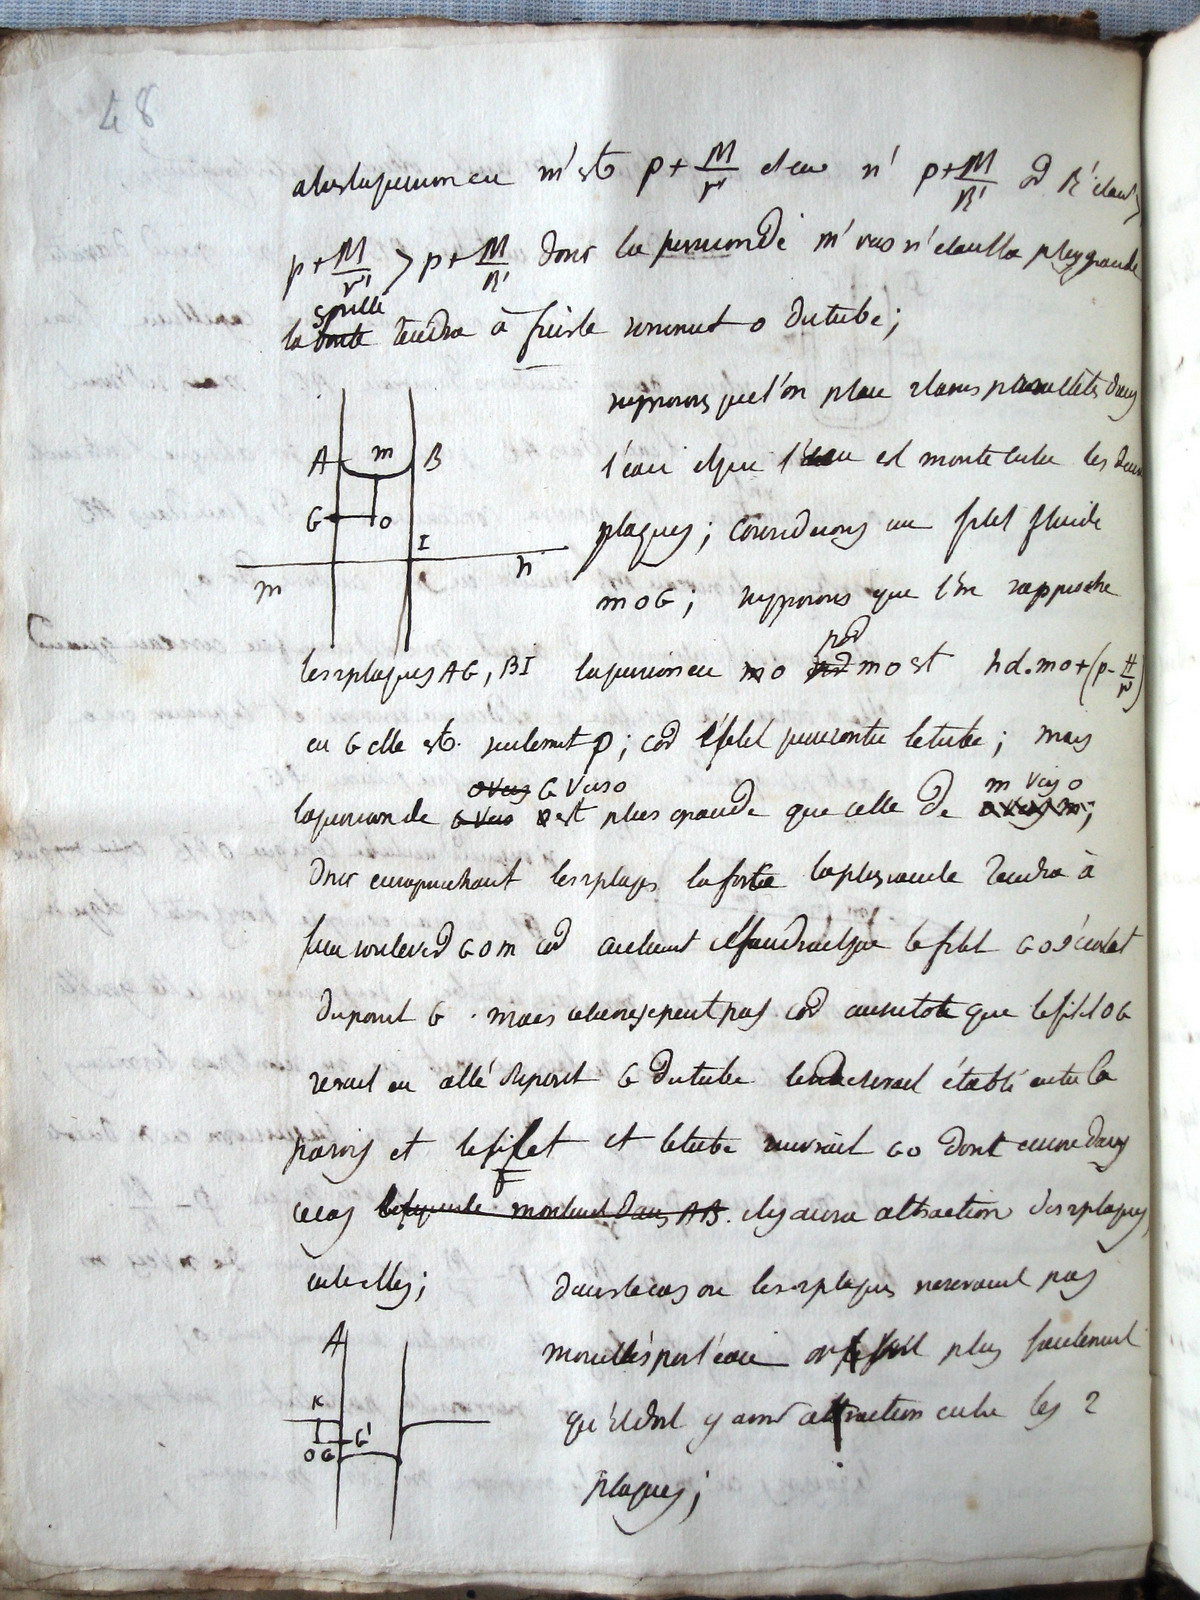 48
alors la pression en m' est p + M/r' et en n' p + M/R' or R' étant >
p + M/r' > p + M/R' donc la pression de m' vers n' étant la plus grande
la goutte tendra à fuir le sommet o du tube;
supposons que l'on place 2 lames parallèles dans
l'eau et que l'eau est monté entre les deux
plaques; considerons un filet fluide
m o G; supposons que l'on rapproche
les 2 plaques AG, BI la pression en o par mo est hd.mo + (p - H/r)
en G elle est seulement p; car le filet rencontre le tube; mais
la pression de G vers o est plus grande que celle de m vers o;
donc en rapprochant les 2 plaques la force la plus grande tendra à
faire soulever G o m car il faudrait que le filet G o s'écartat
du point G. mais cela ne se peut pas car aussitot que le filet o G
serait en allé du point G du tube le vide serait établi entre la
parois et le filet et le tube suivrait G o donc encore dans
ce cas il y aura attraction des 2 plaques
entre elles;
dans le cas ou les 2 plaques ne seraient pas
mouillés par l'eau on voit plus facilement
qu'il doit y avoir attraction entre les 2
plaques;
A m B
G o
I
m n
A
K
o G G'